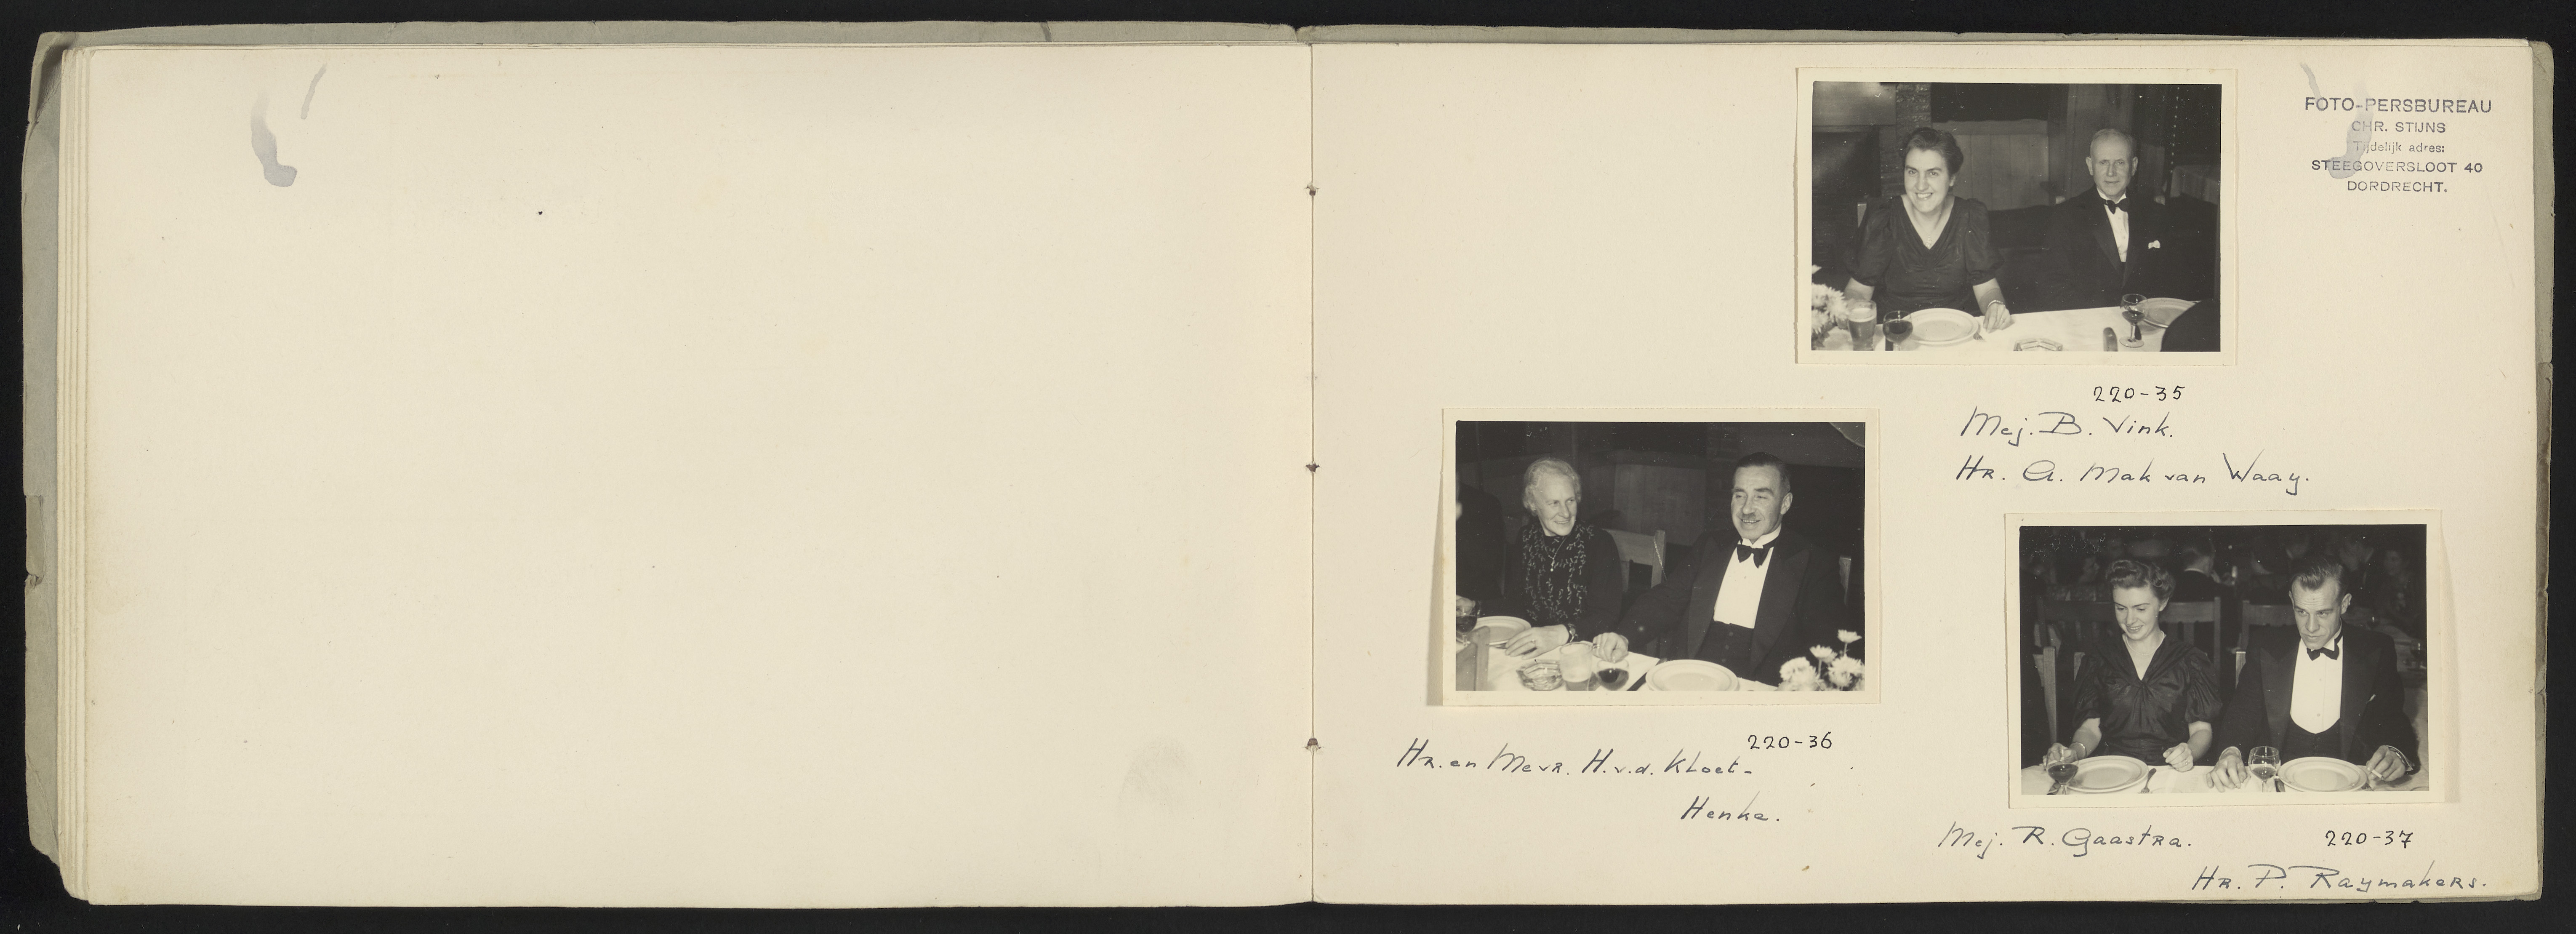 FOTO-PERSBUREAU
CHR. STIJNS
Tijdelijk adres:
STEEGOVERSLOOT 40
DORDRECHT.
220-35
Mej. B. Vink.
Hr. A. Mak van Waay.
220-36
Hr. en Mevr. H.v.d. Kloet-
Henke.
Mej. R. Gaastra.
220-37
Hr. P. Raymakers.